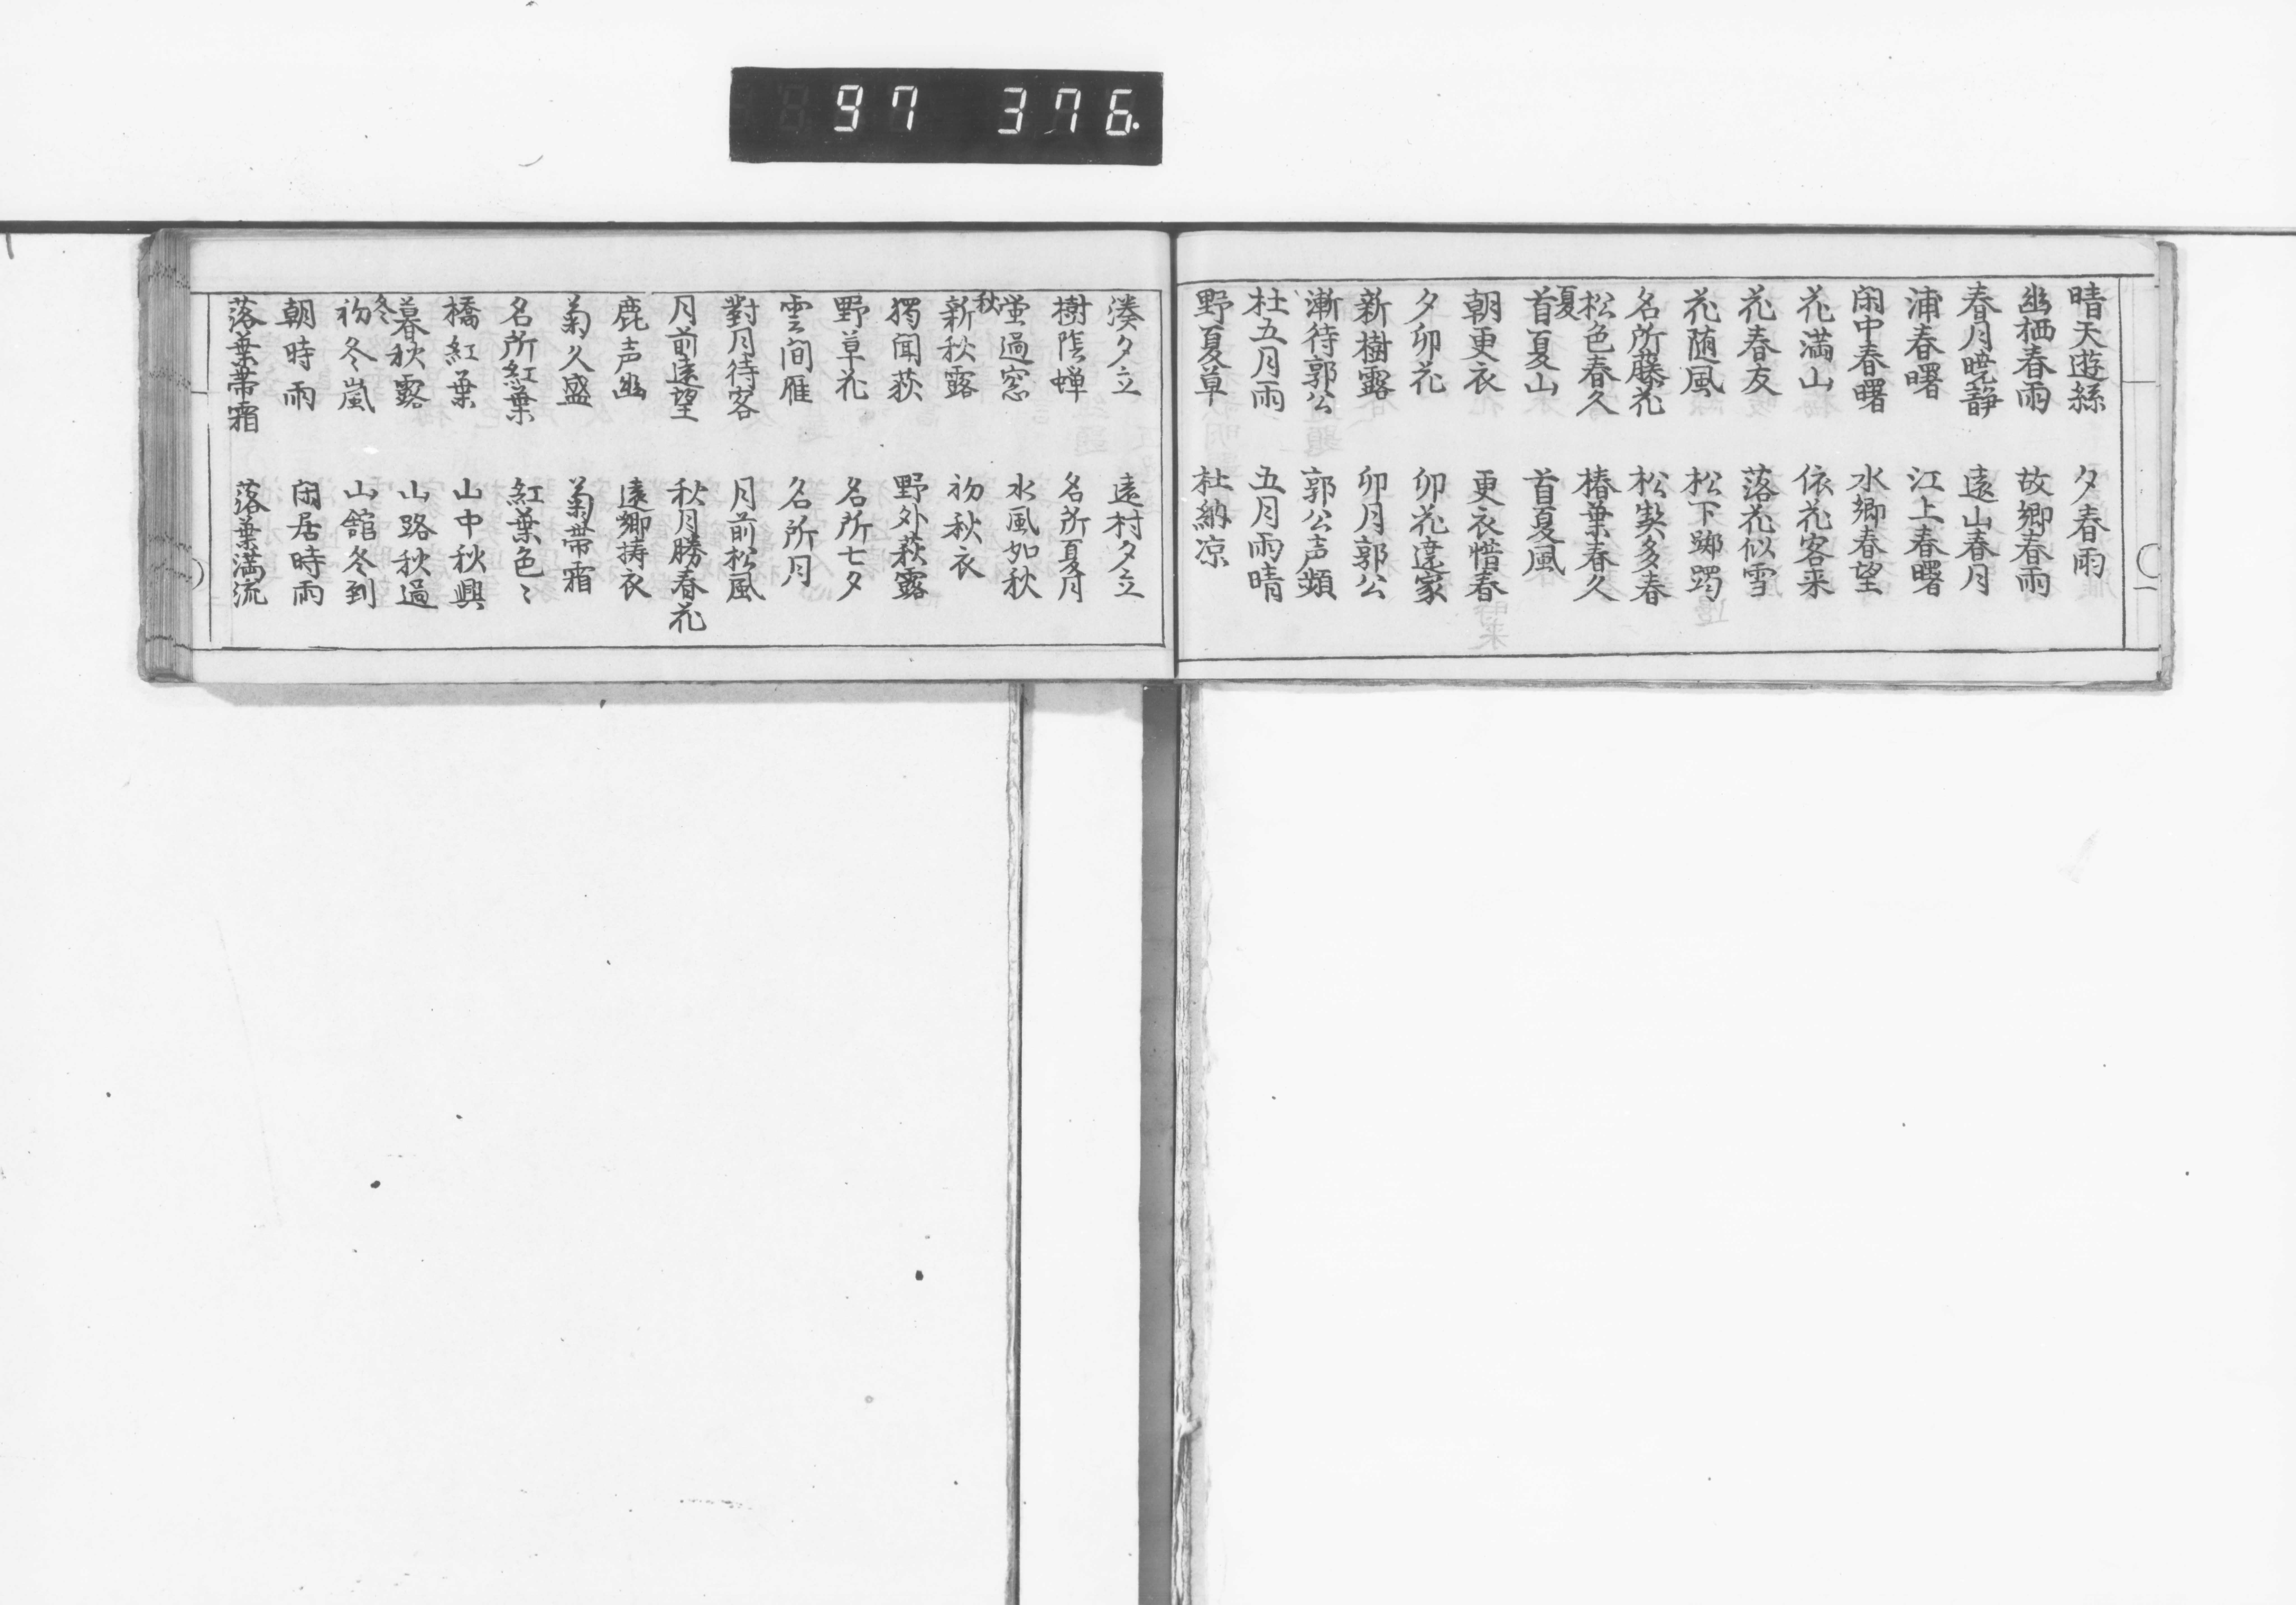 97 376
晴天遊絲 夕春雨
幽栖春雨 故郷春雨
春月暁静 遠山春月
浦春曙 江上春曙
閑中春曙 水郷春望
花満山 依花客来
花春友 落花似雪
花随風 松下躑躅
名所藤花 松契多春
松色春久 椿葉春久
夏
首夏山 首夏風
朝更衣 更衣惜春
夕卯花 卯花遶家
新樹露 卯月郭公
漸待郭公 郭公声頻
杜五月雨 五月雨晴
野夏草 杜納凉
湊夕立 遠村夕立
樹陰蝉 名所夏月
蛍過窓 水風如秋
秋
新秋露 初秋衣
獨聞荻 野外萩露
野草花 名所七夕
雲間雁 名所月
對月待客 月前松風
月前遠望 秋月勝春花
鹿声幽 遠郷擣衣
菊久盛 菊帯霜
名所紅葉 紅葉色〻
橋紅葉 山中秋興
暮秋露 山路秋過
冬
初冬嵐 山舘冬到
朝時雨 閑居時雨
落葉帯霜 落葉満流